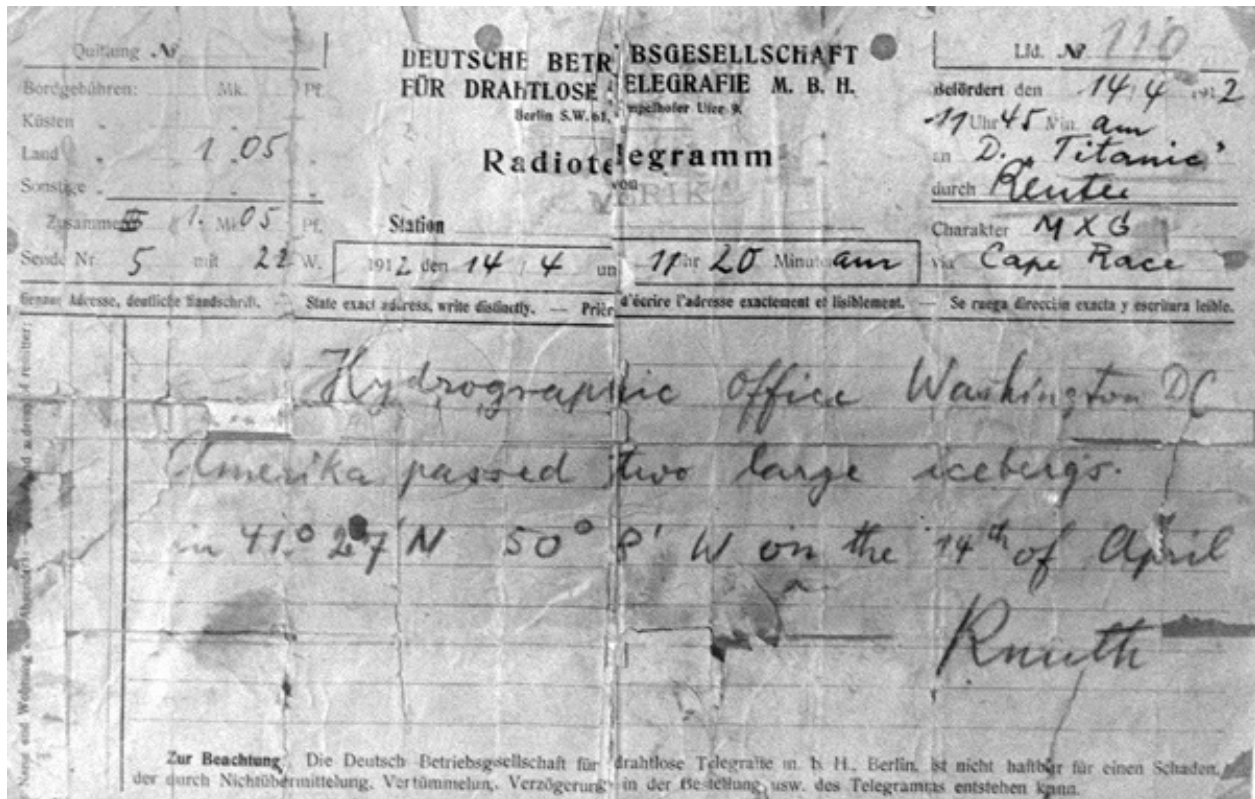 Quittung Nr.
Bordgebühren: Mk. Pf.
Küsten "
Land " 1.05 "
Sonstige "
Zusammen 1. Mk. 05 Pf.
Sende Nr. 5 mit 22 W.
DEUTSCHE BETRIEBSGESELLSCHAFT
FÜR DRAHTLOSE TELEGRAFIE M. B. H.
Berlin S.W. 61, Tempelhofer Ufer 9.
Radiotelegramm
von
AMERIKA
Station
1912 den 14 / 4 um 11 Uhr 20 Minute am
Lfd. Nr. 110
Befördert den 14/4 1912
11 Uhr 45 Min. am
an D. "Titanic"
durch Reuter
Charakter MXG
via Cape Race
Genaue Adresse, deutliche Handschrift. — State exact address, write distinctly. — Prière d'écrire l'adresse exactement et lisiblement. — Se ruega dirección exacta y escritura leible.
Hydrographic Office Washington DC
Amerika passed two large icebergs.
in 41° 27' N 50° 8' W on the 14th of April
Knuth
Name und Wohnung des Absenders: and adress of remitter:
Zur Beachtung. Die Deutsch Betriebsgsellschaft für drahtlose Telegrafie m. b. H., Berlin, ist nicht haftbar für einen Schaden,
der durch Nichtübermittelung, Vertümmelun, Verzögerung in der Bestellung usw. des Telegramms entstehen kann.